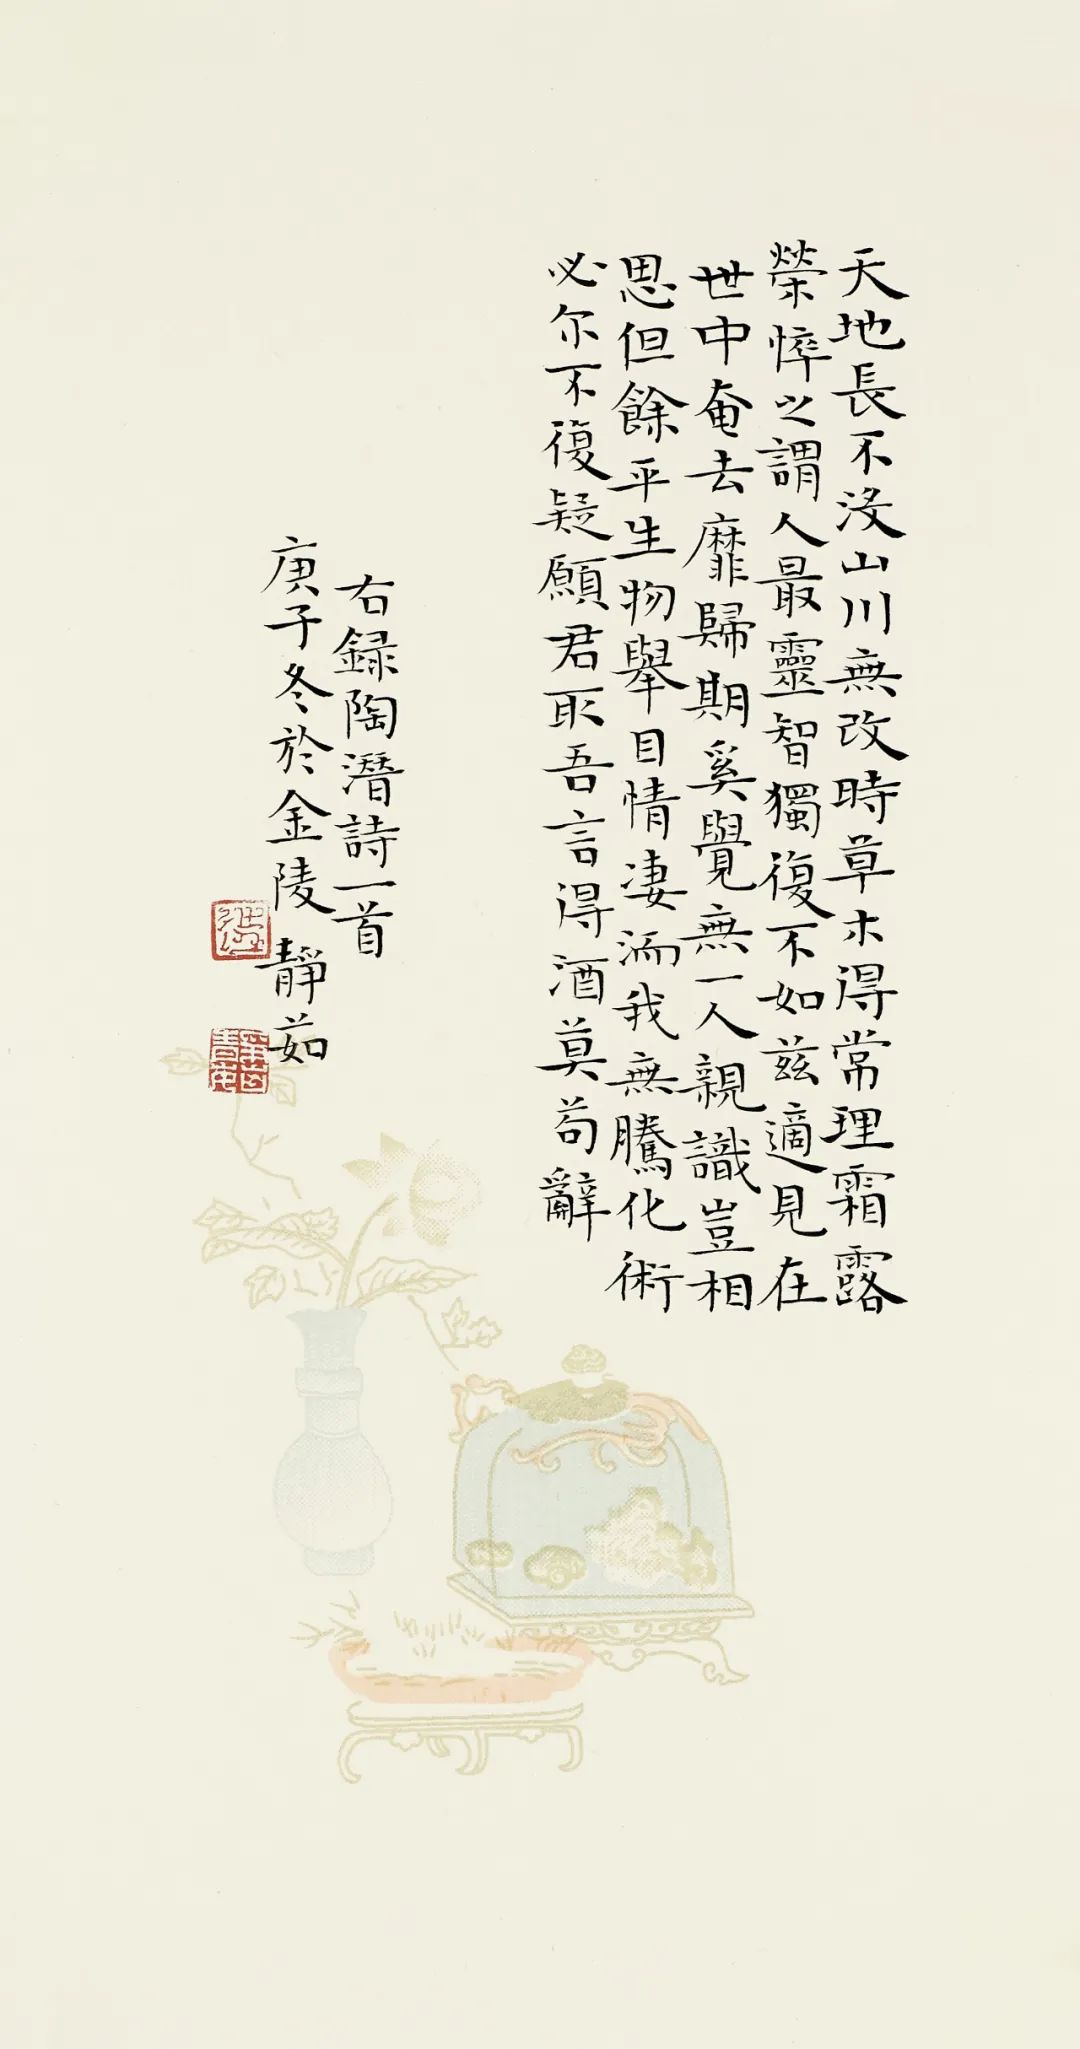 天地長不没山川無改時草木得常理霜露
榮悴之謂人最靈智獨復不如兹適見在
世中奄去靡歸期奚覺無一人親識豈相
思但餘平生物舉目情凄洏我無騰化術
必尔不復疑願君取吾言得酒莫苟辭
右録陶潛詩一首
庚子冬於金陵 靜茹